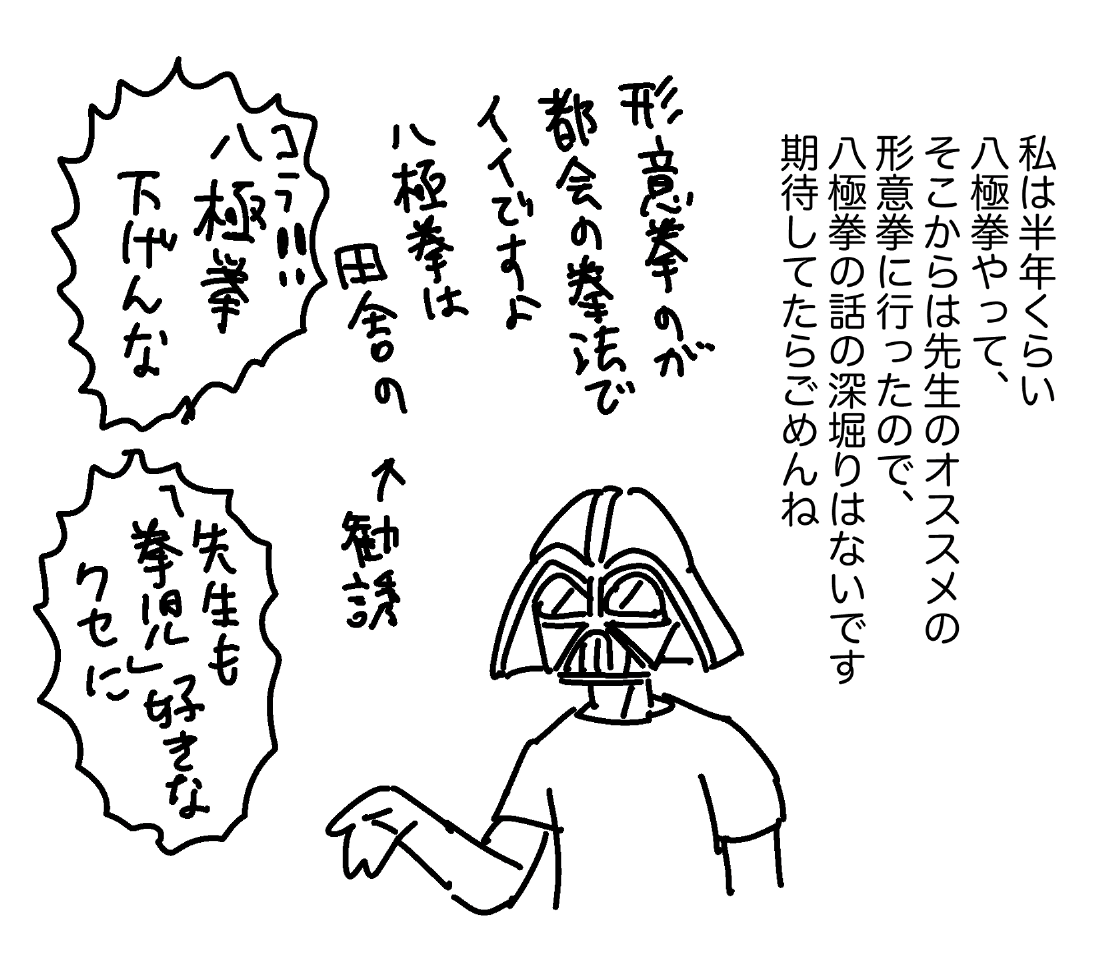 私は半年くらい
八極拳やって、
そこからは先生のオススメの
形意拳に行ったので、
八極拳の話の深堀りはないです
期待してたらごめんね
形意拳のが
都会の拳法で
イイですよ
八極拳は
田舎の
←勧誘
コラ!!!
八極拳
下げんな
先生も
「拳児」好きな
クセに